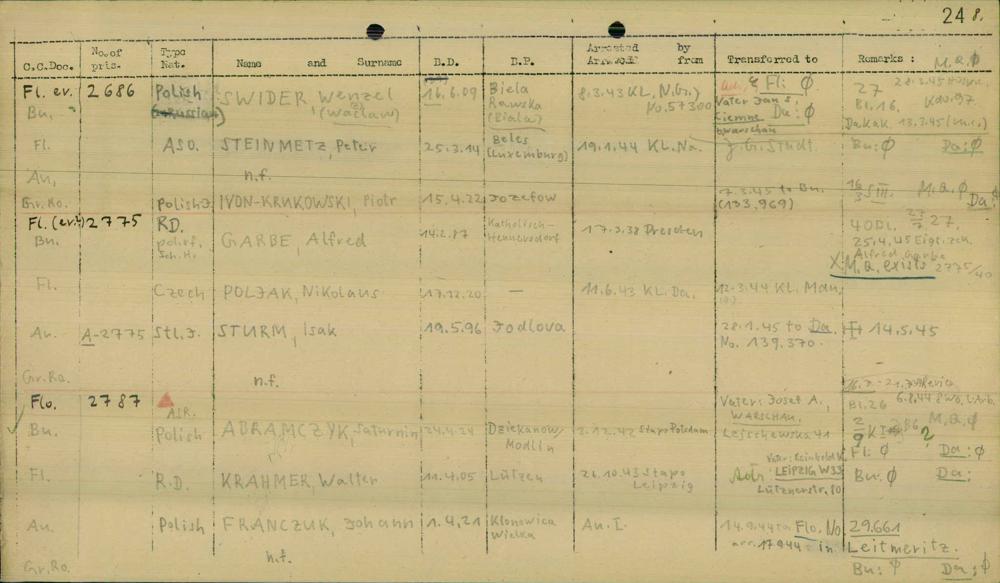 24 8.
C.C.Doc. No. of pris. Type Nat. Name and Surname B.D. B.P. Arrested by Arrived from Transferred to Remarks: M.Q. Ø
Fl. ev. 2686 Polish SWIDER Wenzel 16.6.09 Biela 8.3.43 KL. N.G.) & Fl: Ø 27
Bu. (Wacław) Rawska (Biala) No. 57300 Vater Jan S, Da: Ø Bl. 16.
Siemne Dakak. 13.3.45
Warschau
Fl. ASO. STEINMETZ, Peter 25.3.14 Beles (Luxemburg) 19.1.44 KL. Na. Bu: Ø Da: Ø
Au, n.f.
Gr.Ro. Polish J. IVON-KRUKOWSKI, Piotr 15.4.22 Jozefow 7.3.45 to Bu. (133,969) 16/3 S III. M.Q. Ø Da: Ø
Fl. (ev.) 2775 RD.
Bu. pol.rf. Sch.H. GARBE, Alfred 14.2.87 Katholisch-Hennersdorf 17.3.38 Dresden 40 Dl. 27.
25.4.45 Eigt. zch.
Alfred Garbe
X M.Q. exists 2775/40
Fl. Czech POLJAK, Nikolaus 17.12.20 — 11.6.43 KL. Da. 12.3.44 KL. Mau.
Au. A-2775 Stl. J. STURM, Isak 19.5.96 Jodlova 28.1.45 to Da. No. 139.370. 14.5.45
Gr.Ro. n.f.
Flo. 2787 AIR. Vater: Josef A., Bl. 26
WARSCHAU.
Bu. Polish ABRAMCZYK, Saturnin 24.4.24 Dziekanow, Modlin 2.12.42 Stapo Potsdam Leischewska 41 2/9 K I M.Q. Ø ?
Fl: Ø Da: Ø
Fl. R.D. KRAHMER, Walter 11.4.05 Lützen 26.10.43 Stapo Leipzig Vater: Reinhold K. Adr. LEIPZIG W33 Lütznerstr. 10 Bu: Ø Da:
Au. Polish FRANCZUK, Johann 1.4.21 Klonowica Wielka Au. I. 14.9.44 to Flo. No 29.661
17944 in Leitmeritz.
n.f.
Gr.Ro. Bu: Ø Da: Ø